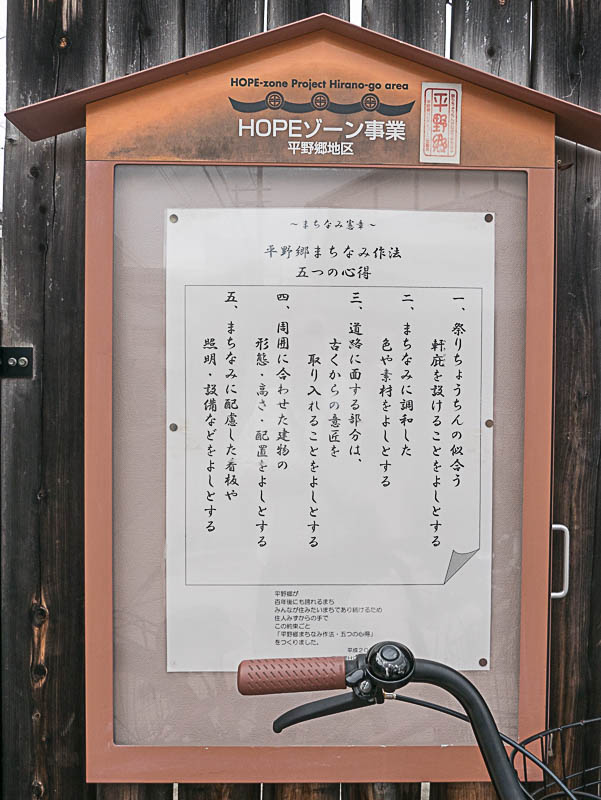 HOPE-zone Project Hirano-go area
HOPEゾーン事業
平野郷地区
平野郷
～まちなみ憲章～
平野郷まちなみ作法
五つの心得
一、祭りちょうちんの似合う
軒庇を設けることをよしとする
二、まちなみに調和した
色や素材をよしとする
三、道路に面する部分は、
古くからの意匠を
取り入れることをよしとする
四、周囲に合わせた建物の
形態・高さ・配置をよしとする
五、まちなみに配慮した看板や
照明・設備などをよしとする
平野郷が
百年後にも誇れるまち
みんなが住みたいまちであり続けるため
住人みずからの手で
この約束ごと
「平野郷まちなみ作法・五つの心得」
をつくりました。
平成２０